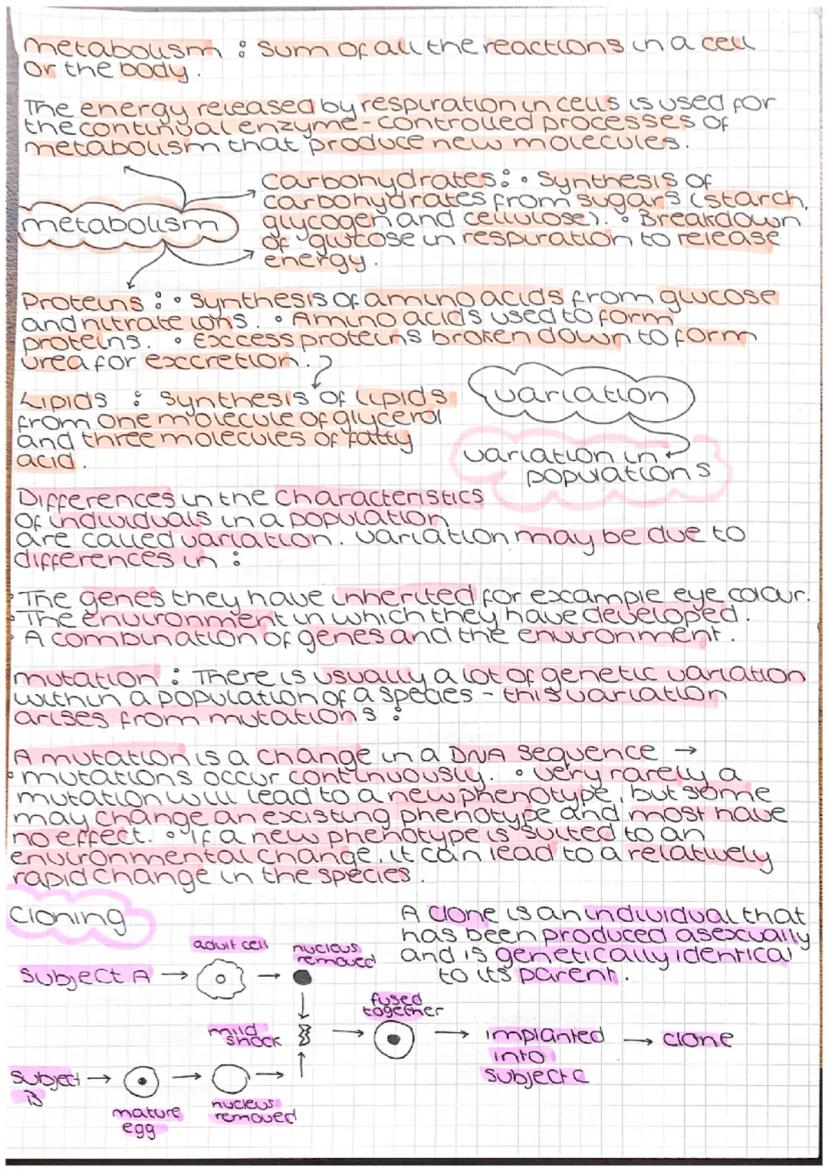 metabolism : sum of all the reactions in a cell
or the body.
The energy released by respiration in cells is used for
the continual enzyme-controlled processes of
metabolism that produce new molecules.
metabolism
carbohydrates: • Synthesis of
carbohydrates from sugars (starch,
glycogen and cellulose). • Breakdown
of glucose in respiration to release
energy.
Proteins : • synthesis of amino acids from glucose
and nitrate ions. • Amino acids used to form
proteins. • excess proteins broken down to form
urea for excretion.
Lipids : synthesis of lipids
from one molecule of glycerol
and three molecules of fatty
acid.
variation
variation in
populations
Differences in the characteristics
of individuals in a population
are called variation. variation may be due to
differences in :
• The genes they have inherited for example eye colour.
• The environment in which they have developed.
• A combination of genes and the environment.
mutation : There is usually a lot of genetic variation
within a population of a species - this variation
arises from mutations :
A mutation is a change in a DNA sequence →
• mutations occur continuously. • very rarely a
mutation will lead to a new phenotype, but some
may change an existing phenotype and most have
no effect. • If a new phenotype is suited to an
environmental change, it can lead to a relatively
rapid change in the species.
cloning
A clone is an individual that
has been produced asexually
and is genetically identical
to its parent.
adult cell
nucleus
removed
subject A →
fused
together
mild
shock
implanted
into
subject C
→ clone
subject
B
mature
egg
nucleus
removed